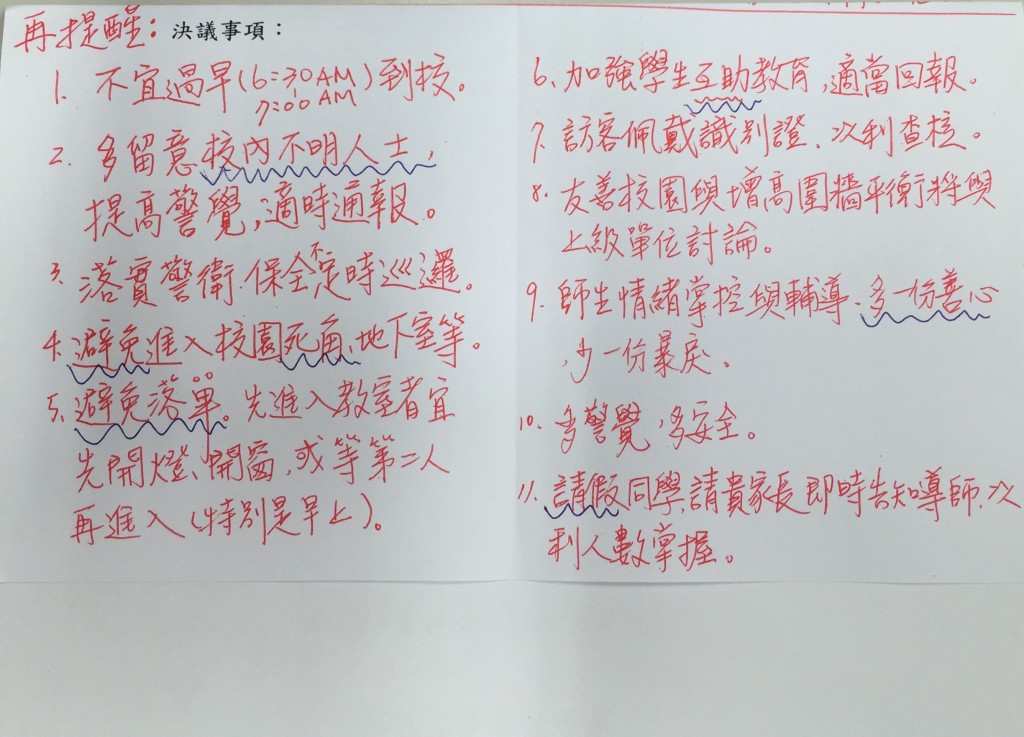 再提醒：決議事項：
1. 不宜過早(6:30AM)到校。
7:00AM
2. 多留意校內不明人士，
提高警覺,適時通報。
3. 落實警衛.保全不定時巡邏。
4. 避免進入校園死角、地下室等。
5. 避免落單。先進入教室者宜
先開燈、開窗,或等第二人
再進入(特別是早上)。
6. 加強學生互助教育,適當回報。
7. 訪客佩戴識別證，以利查核。
8. 友善校園與增高圍牆平衡將與
上級單位討論。
9. 師生情緒掌控與輔導、多一份善心
,少一份暴戾。
10. 多警覺,多安全。
11. 請假同學,請貴家長即時告知導師,以
利人數掌握。